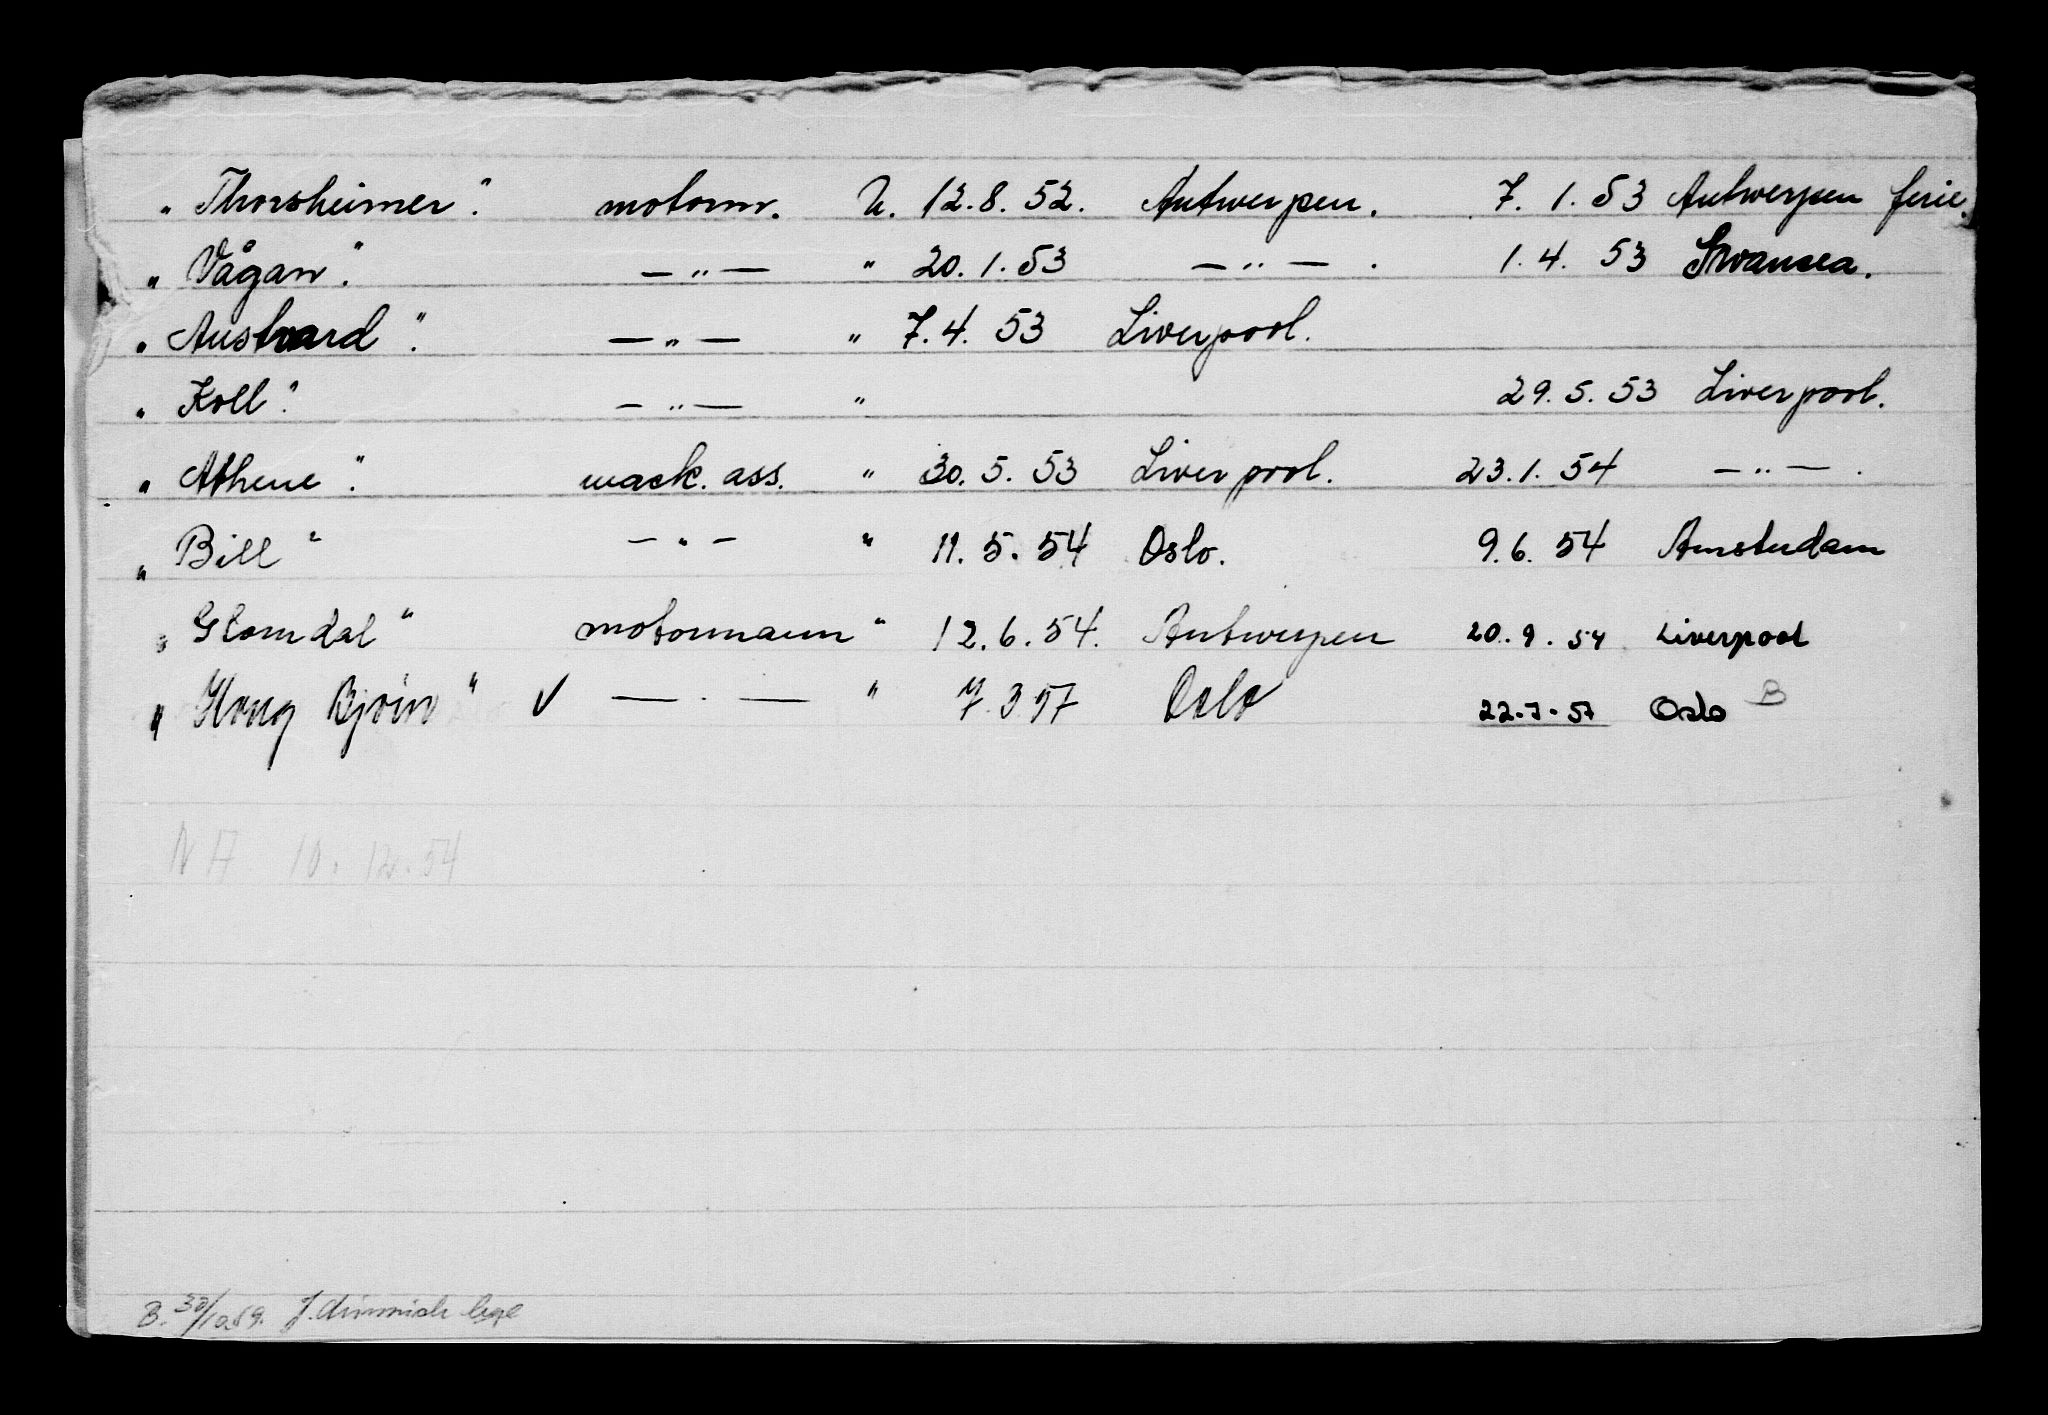 „ Thorsheimer". motorm. U. 12.8.52. Antwerpen. 7.1.53 Antwerpen ferie.
„ Vågan". —"— " 20.1.53 —"— . 1.4.53 Swansea.
„ Austvard". —"— " 7.4.53 Liverpool.
„ Koll". —"— " 29.5.53 Liverpool.
„ Athene". mask. ass. " 30.5.53 Liverpool. 23.1.54 —"— .
„ Bill" —"— " 11.5.54 Oslo. 9.6.54 Amsterdam
„ Glomdal" motormann " 12.6.54. Antwerpen 20.9.54 Liverpool
„ Kong Bjørn" ✓ — . — " 7.3 57 Oslo 22.7.57 Oslo B
NA 10.12.54
B. 30/10.59.